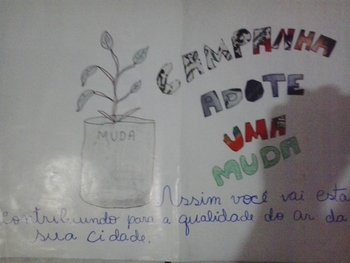 CAMPANHA
ADOTE
UMA
MUDA
MUDA
Assim você vai esta
contribuindo para a qualidade do ar da
sua cidade.